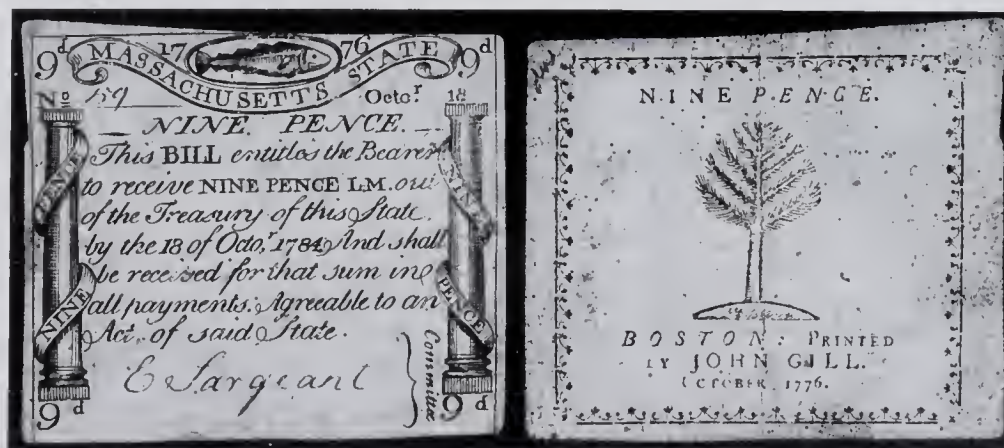 9d 17 76 9d
MASSACHUSETTS STATE
No 159 Octor. 18
NINE PENCE.
This BILL entitles the Bearer
to receive NINE PENCE LM. out
of the Treasury of this State.
by the 18 of Octor. 1784 And shall
be received for that sum in
all payments. Agreeable to an
Act, of said State.
PENCE
NINE
NINE
PENCE
E Sargeant
Committee
9d 9d
NINE PENCE.
BOSTON: PRINTED
BY JOHN GILL.
OCTOBER, 1776.